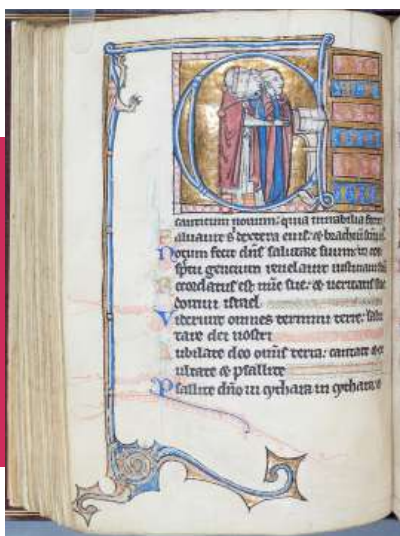 C
canticum nouum: quia mirabilia fecit
Saluauit s' dextera eius: & brachiū
Notum fecit dn̄s salutare suum: in con
spectu gentium reuelauit iusticiam
Recordatus est mīe sue: & ueritatis sue
domui israel
Viderunt omnes termini terre: salu
tare dei nostri
Iubilate deo omīs terra: cantate & ex
ultate & psallite
Psallite dn̄o in cythara in cythara &